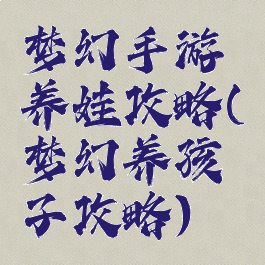 梦幻手游
养娃攻略(
梦幻养孩
子攻略)